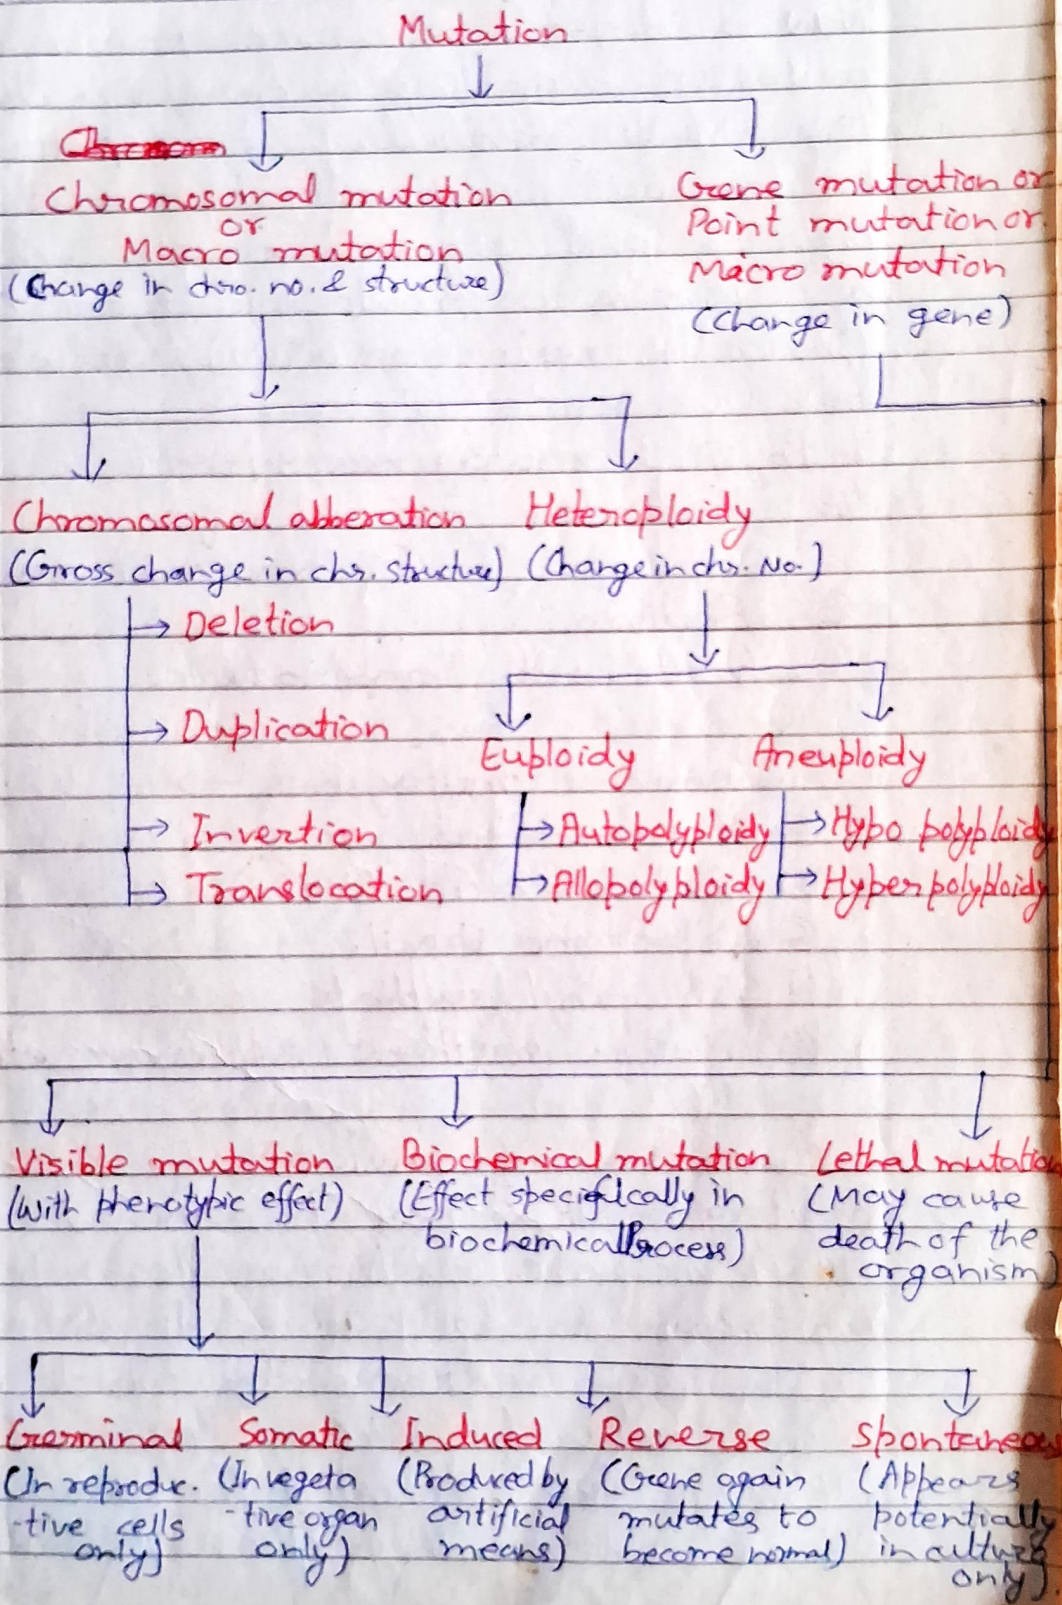 Mutation
Chromosomal mutation
or
Macro mutation
(Change in chro. no. & structure)
Gene mutation or
Point mutation or
Macro mutation
(Change in gene)
Chromosomal abberation
(Gross change in chs. structure)
Heteroploidy
(Change in chs. No.)
Deletion
Duplication
Invertion
Translocation
Euploidy
Aneuploidy
Autopolyploidy
Allopolyploidy
Hypo polyploidy
Hyper polyploidy
Visible mutation
(With phenotypic effect)
Biochemical mutation
(Effect specifically in
biochemical Process)
Lethal mutation
(May cause
death of the
organism)
Germinal
(In reproduc.
-tive cells
only)
Somatic
(In vegeta
-tive organ
only)
Induced
(Produced by
artificial
means)
Reverse
(Gene again
mutates to
become normal)
Spontaneous
(Appears
potentially
in culture
only).